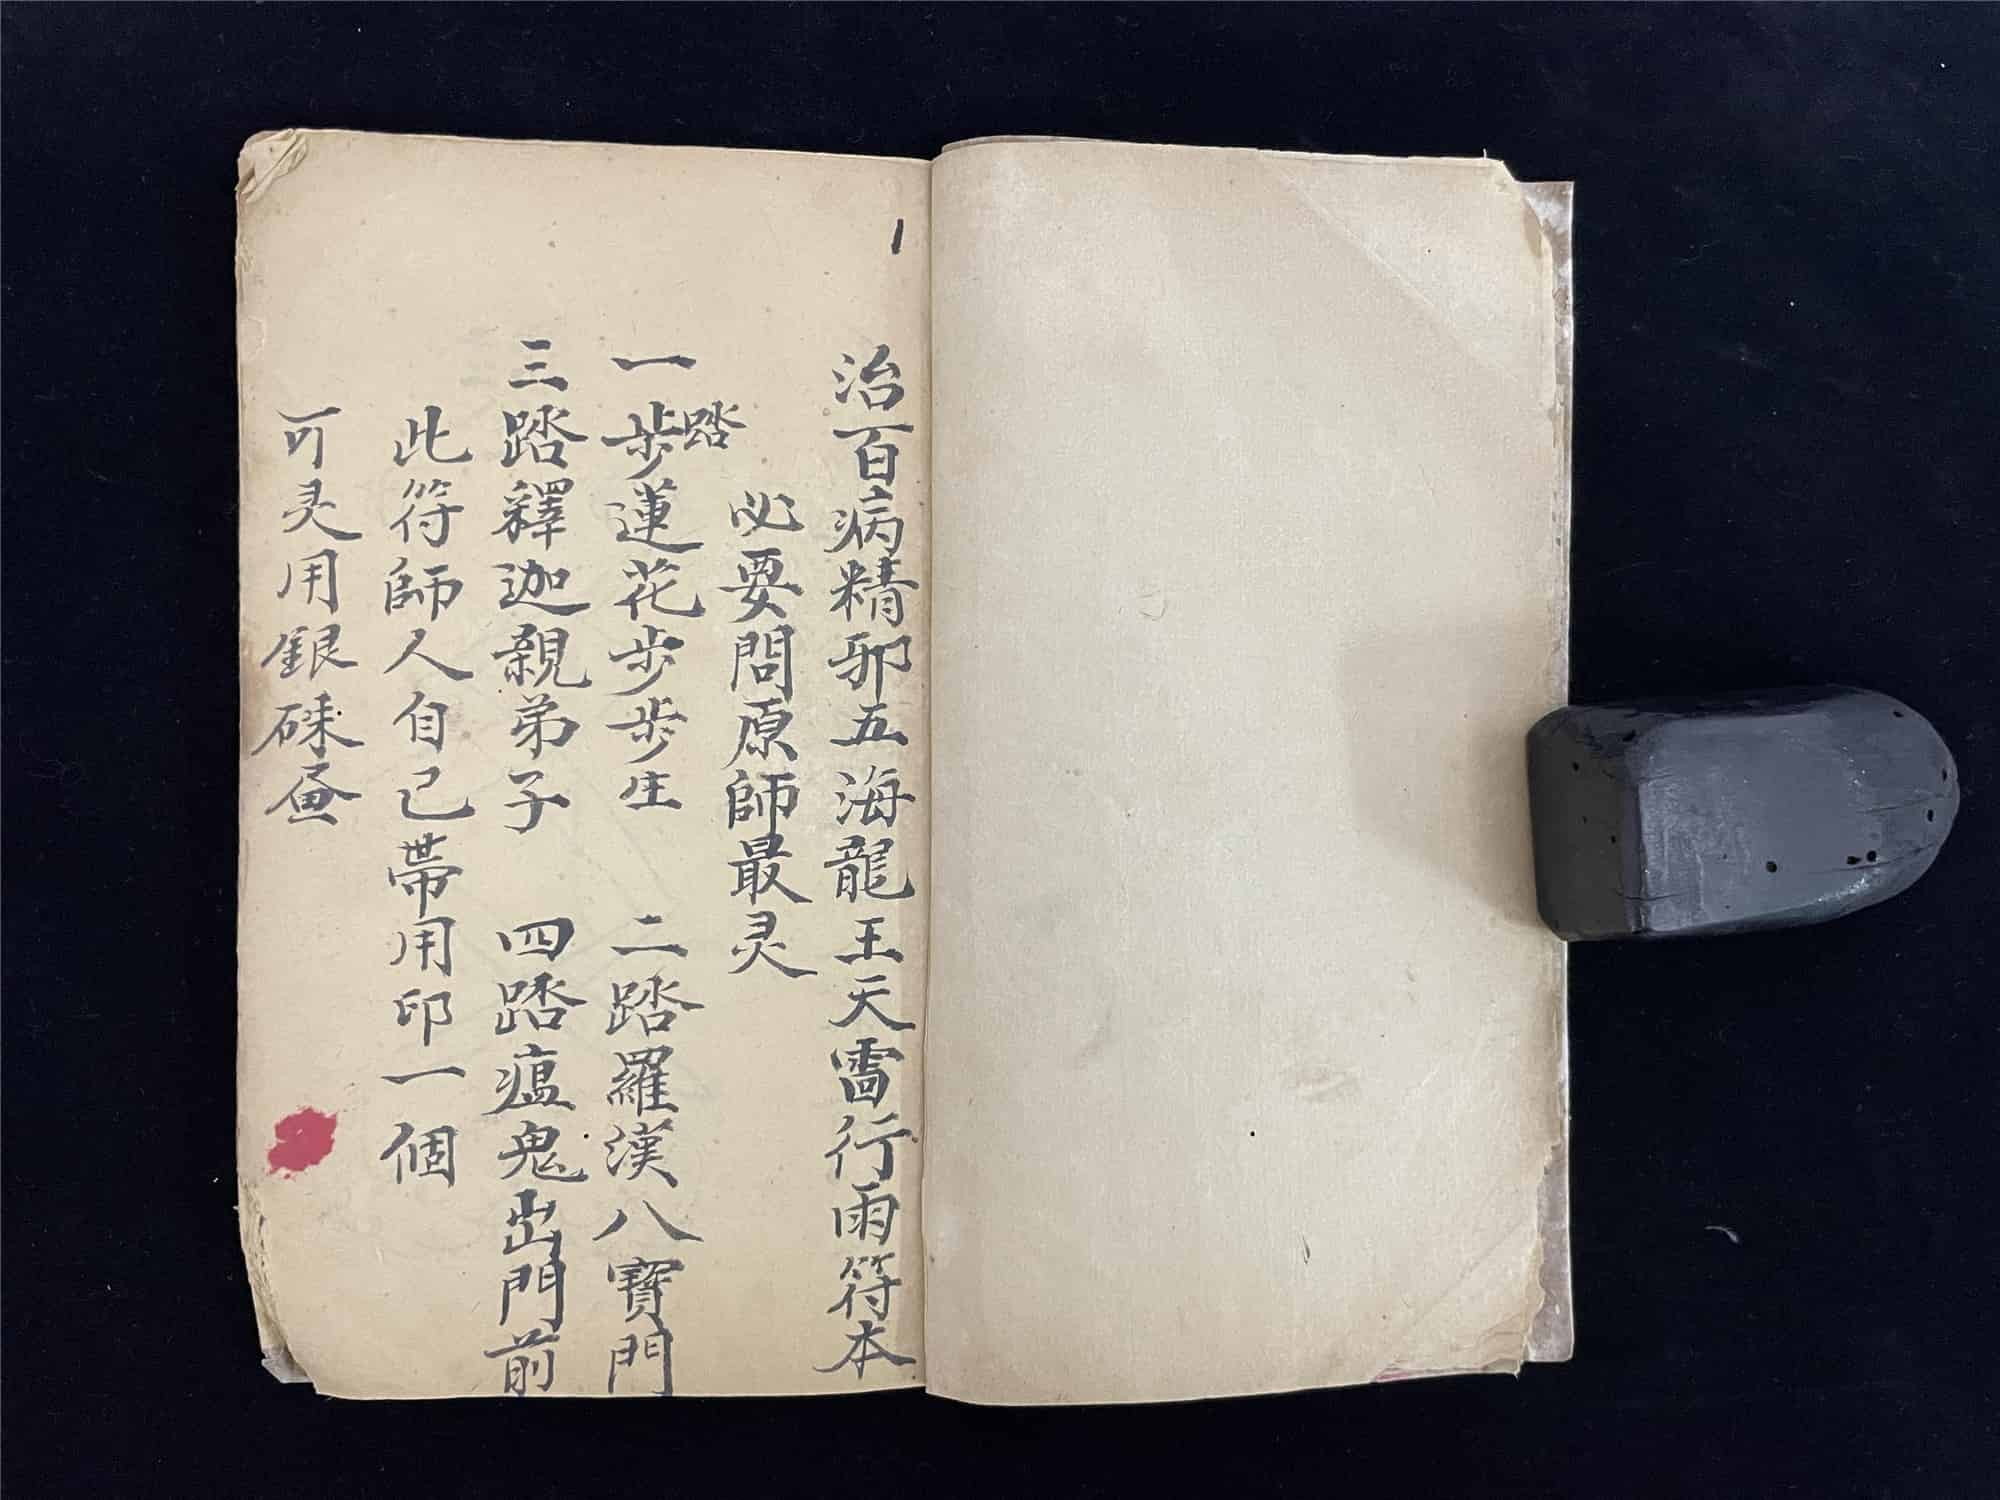 1
治百病精邪五海龍王天雷行雨符本
必要問原師最灵
一步踏蓮花步步生 二踏羅漢八寶門
三踏釋迦親弟子 四踏瘟鬼出門前
此符師人自己帶用印一個
可灵用銀硃